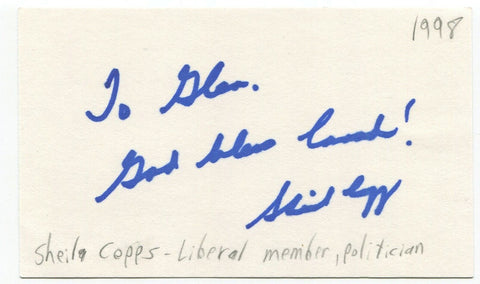 1998
To Glen.
God bless Canada!
Sheila Copps
Sheila Copps - Liberal member, politician